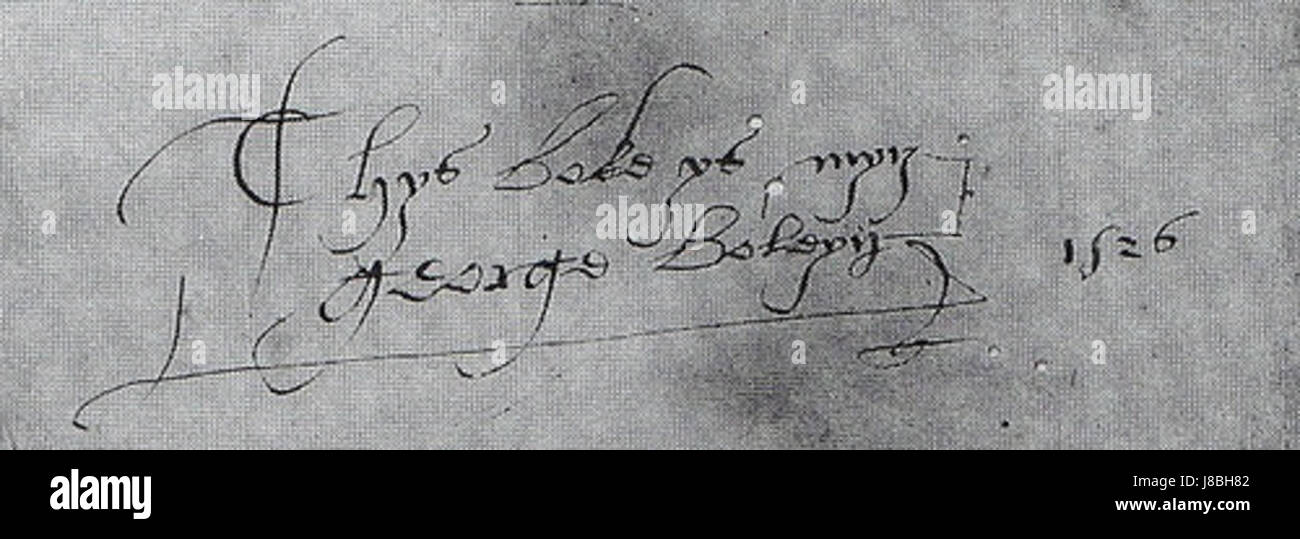 Thys boke ys myn
George Boleyn 1526
alamy
alamy
alamy
a
a
a
a
a
a
a
a
alamy
Image ID: J8BH82
www.alamy.com